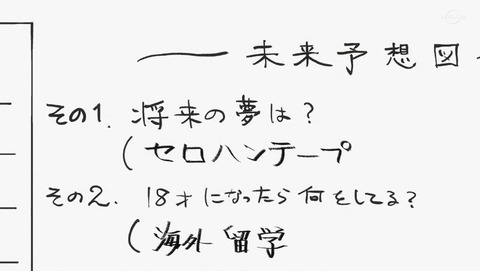 未来予想図
その1. 将来の夢は?
(セロハンテープ
その2. 18才になったら何をしてる?
(海外留学